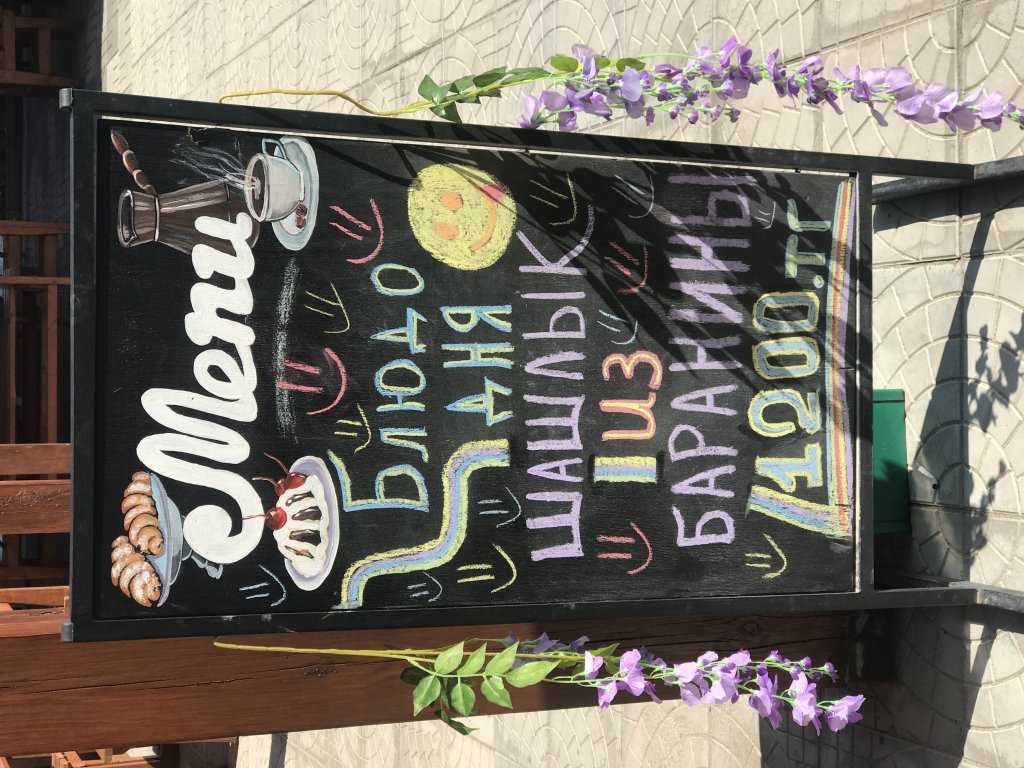 Menu
БЛЮДО
ДНЯ
ШАШЛЫК
ИЗ
БАРАНИНЫ
1200.тг